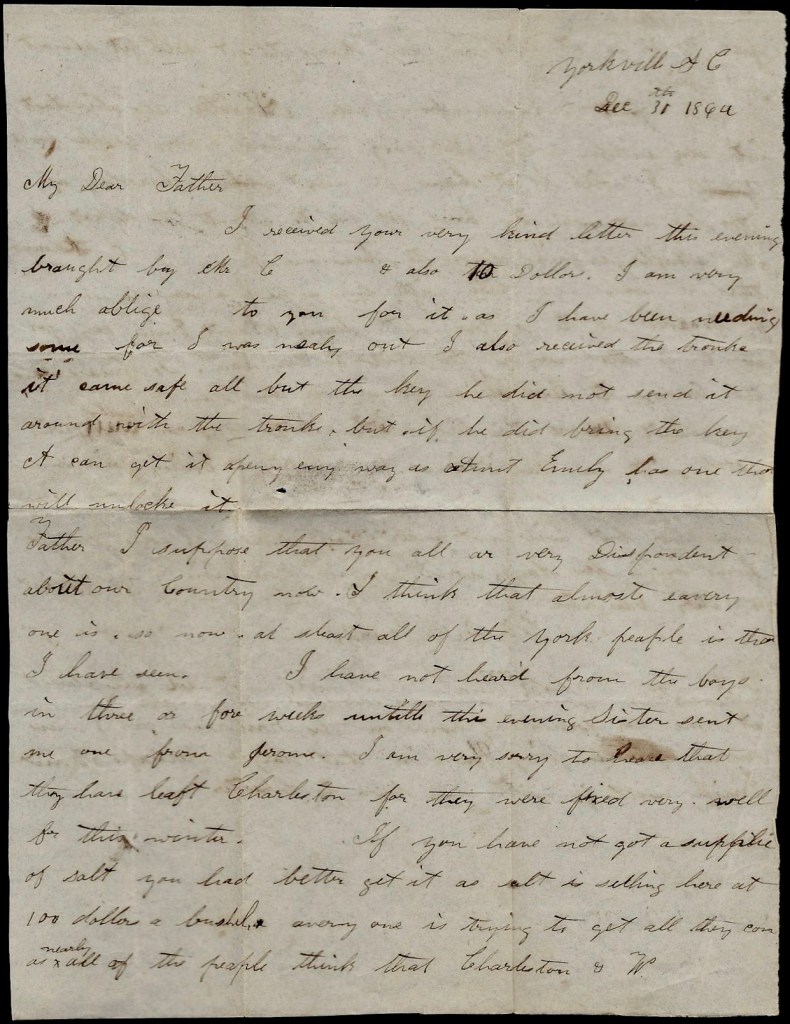 Yorkville S C
Dec 31th 1864
My Dear Father
I received your very kind letter this evening
braught by Mr C & also 10 Dollor. I am very
much oblige to you for it. as I have been needing
some for I was nealy out I also received the trunke
it came safe all but the key he did not send it
around with the trunke. but if he did bring the key
I can get it openy eny way as Aunt Emily has one that
will unlocke it
Father I suppose that you all ar very Dispondent
about our Country now. I think that almoste eavery
one is. so now. at least all of the York peaple is that
I have seen. I have not heard from the boys.
in three or fore weeks untille this evening Sister sent
me one from Jerome. I am very sorry to heare that
they have leaft Charleston for they were fixed very. well
for this winter. If you have not got a supplie
of salt you had better get it as salt is selling here at
100 dollers a bushel. avery one is trying to get all they can
as nearly x all of the peaple think that Charleston & W.